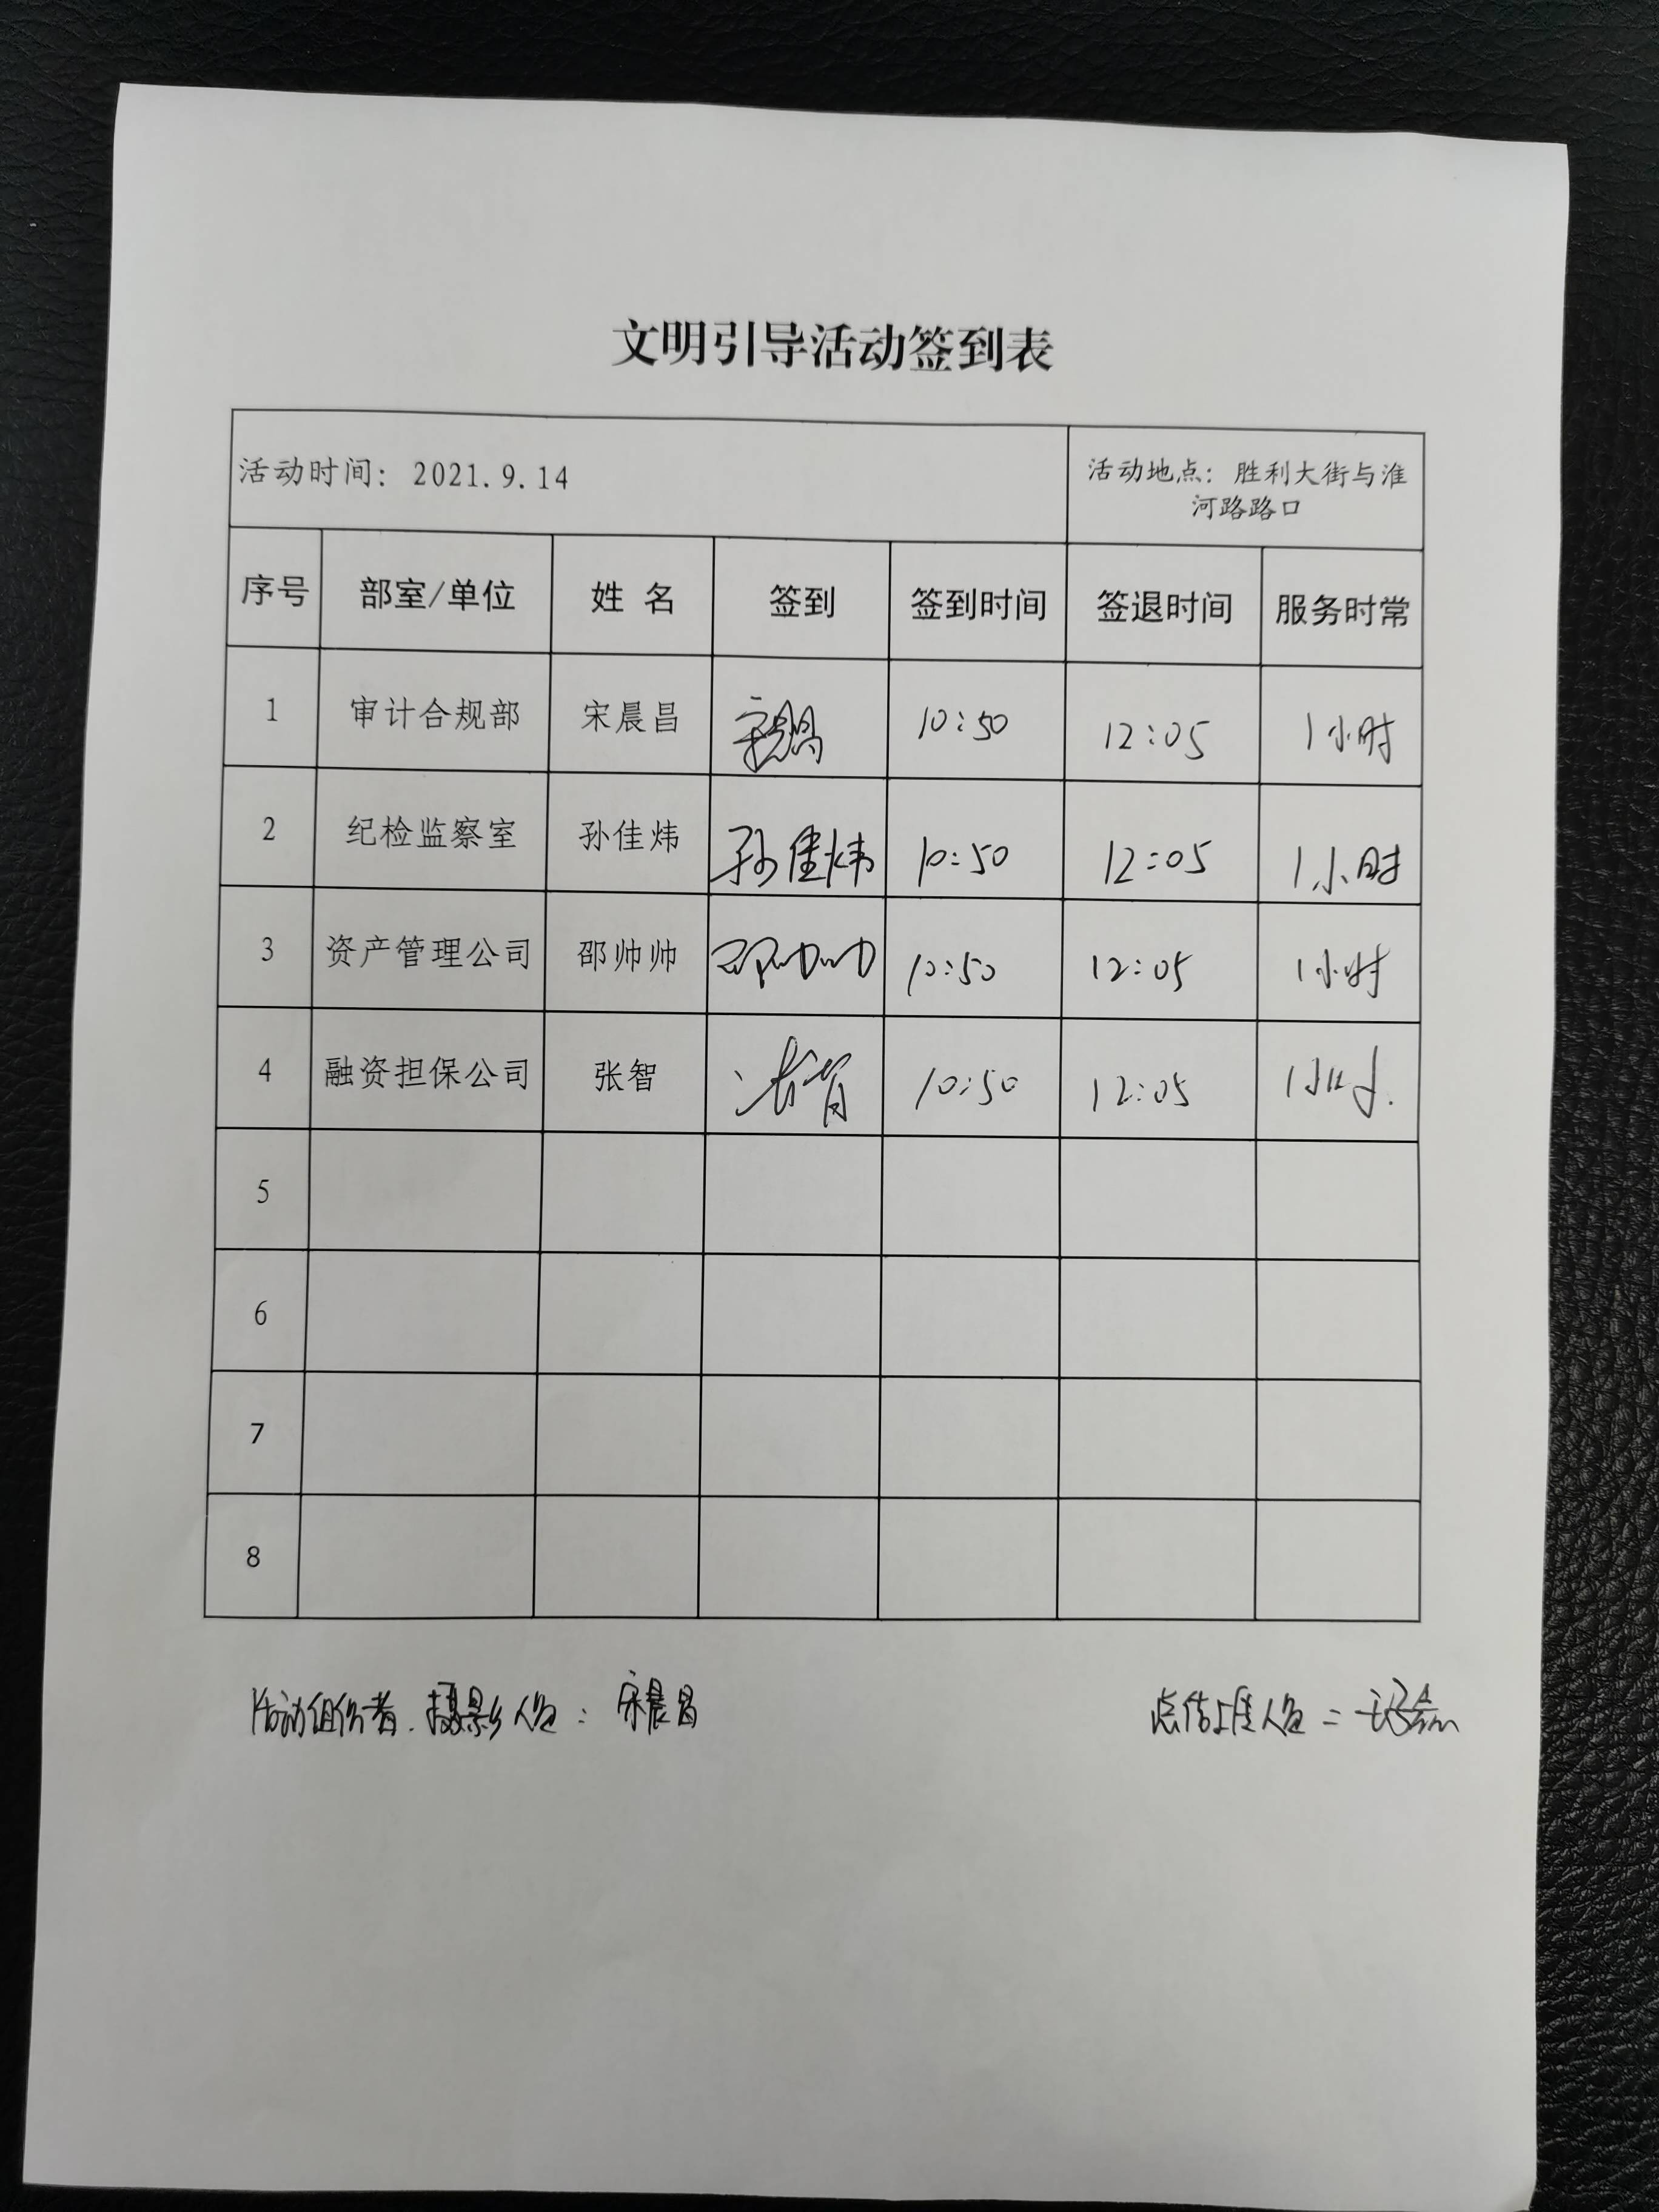 文明引导活动签到表
活动时间：2021.9.14
活动地点：胜利大街与淮
河路路口
序号 部室/单位 姓 名 签到 签到时间 签退时间 服务时常
1 审计合规部 宋晨昌 宋晨昌 10:50 12:05 1小时
2 纪检监察室 孙佳炜 孙佳炜 10:50 12:05 1小时
3 资产管理公司 邵帅帅 邵帅帅 10:50 12:05 1小时
4 融资担保公司 张智 张智 10:50 12:05 1小时.
5
6
7
8
活动组织者.摄影人员：宋晨昌
人员：